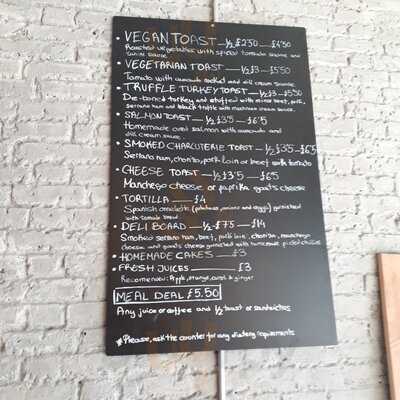 • VEGAN TOAST — ½ £2'50 — £4'50
Roasted vegetables with spiced tomato sauce and
• VEGETARIAN TOAST — ½ £3 — £5'50
Tomato with avocado rocket and dill cream sauce
• TRUFFLE TURKEY TOAST — ½ £3 — £5'50
De-boned turkey and stuffed with mince beef, pork,
serrano ham and black truffle with mushroom cream sauce.
• SALMON TOAST — ½ £3'5 — £6'5
Homemade cured salmon with avocado and
dill cream sauce
• SMOKED CHARCUTERIE TOAST — ½ £3'5 — £6'5
Serrano ham, chorizo, pork loin or beef with tomato
• CHEESE TOAST — ½ £3'5 — £6'5
Manchego cheese or paprika goats cheese
• TORTILLA — £4
Spanish omelette (potatoes, onions and eggs) garnished
with tomato bread
• DELI BOARD — ½ £7'5 — £14
Smoked serrano ham, beef, pork loin, chorizo, manchego
cheese and goats cheese garnished with homemade pickled
• HOMEMADE CAKES — £3
• FRESH JUICES — £3
Recomended: Apple, orange, carrot & ginger
MEAL DEAL £5.50
Any juice or coffee and ½ toast or sandwiches
* Please, ask the counter for any dietary requirements